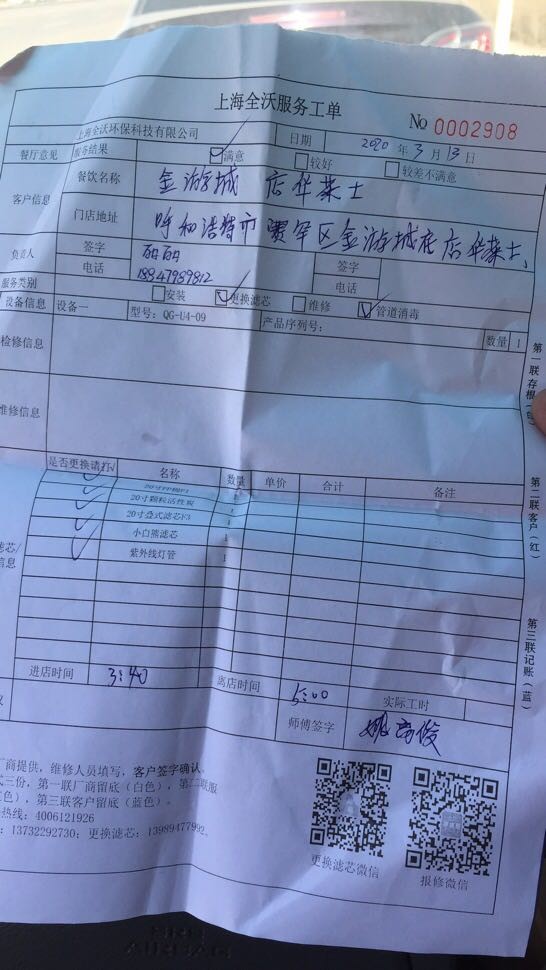 上海全沃服务工单
No 0002908
上海全沃环保科技有限公司 日期 2020年3月13日
餐厅意见 服务结果 满意 较好 较差不满意
客户信息 餐饮名称 金游城店华莱士
门店地址 呼和浩特市赛罕区金游城店华莱士
负责人 签字 丽丽 签字
电话 18847989812 电话
服务类别 安装 更换滤芯 维修 管道消毒
设备信息 设备一 型号: QG-U4-09 产品序列号: 数量 1
检修信息
维修信息
是否更换请打√ 名称 数量 单价 合计 备注
20寸颗粒活性炭
20寸叠式滤芯F3
小白熊滤芯
紫外线灯管
滤芯/
信息
进店时间 3:40 离店时间 5:00 实际工时
师傅签字
厂商提供,维修人员填写,客户签字确认。
式三份,第一联厂商留底(白色),第二联服
红色),第三联客户留底(蓝色)。
热线: 4006121926
: 13732292730; 更换滤芯: 13989477992.
更换滤芯微信 报修微信
第一联存根
第二联客户(红)
第三联记账(蓝)
AIRBAG